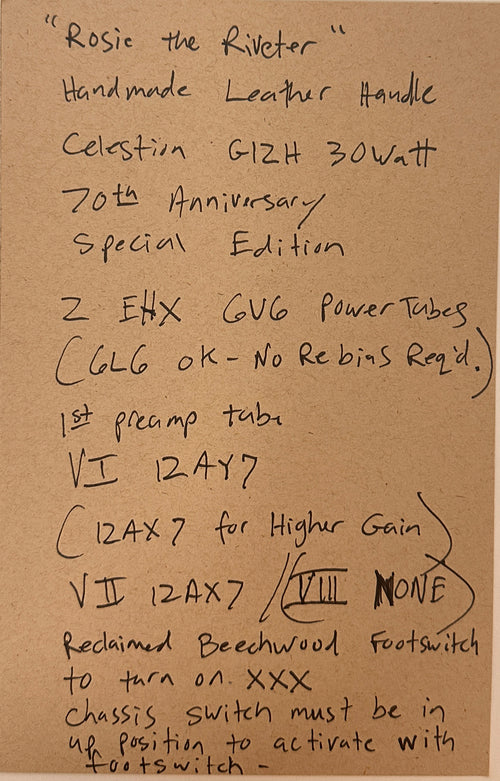 "Rosie the Riveter"
Handmade Leather Handle
Celestion G12H 30Watt
70th Anniversary
Special Edition
2 EHX 6V6 Power Tubes
(6L6 OK - No Rebias Req'd.)
1st preamp tube
VI 12AY7
(12AX7 for Higher Gain)
VII 12AX7 / (VIII NONE)
Reclaimed Beechwood Footswitch
to turn on XXX
Chassis switch must be in
up position to activate with
footswitch -